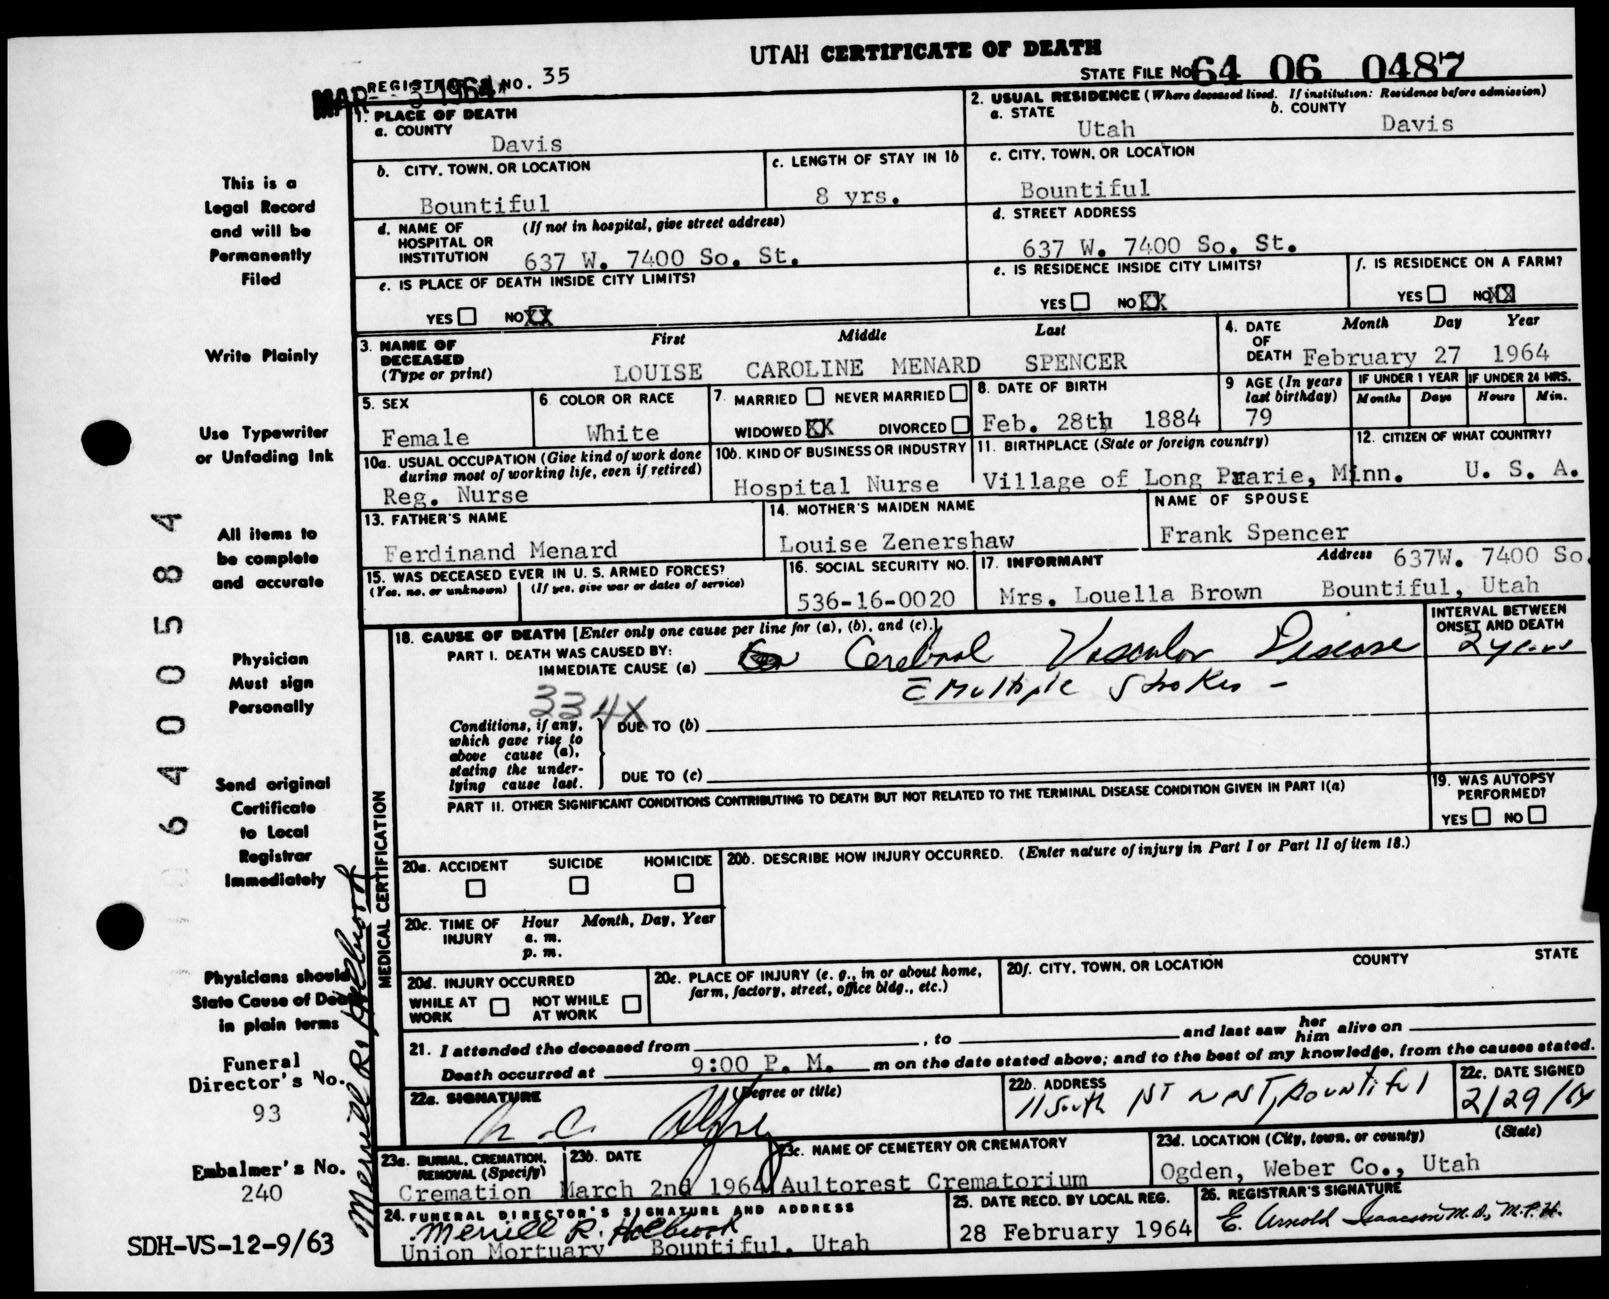 UTAH CERTIFICATE OF DEATH
STATE FILE NO. 64 06 0487
REGISTRAR'S NO. 35
MAR - 3 1964
1. PLACE OF DEATH
a. COUNTY
Davis
2. USUAL RESIDENCE (Where deceased lived. If institution: Residence before admission)
a. STATE
Utah
b. COUNTY
Davis
b. CITY, TOWN, OR LOCATION
Bountiful
c. LENGTH OF STAY IN 1b
8 yrs.
c. CITY, TOWN, OR LOCATION
Bountiful
d. NAME OF HOSPITAL OR INSTITUTION
(If not in hospital, give street address)
637 W. 7400 So. St.
d. STREET ADDRESS
637 W. 7400 So. St.
e. IS PLACE OF DEATH INSIDE CITY LIMITS?
YES NO XX
e. IS RESIDENCE INSIDE CITY LIMITS?
YES NO XX
f. IS RESIDENCE ON A FARM?
YES NO XX
3. NAME OF DECEASED
(Type or print)
First Middle Last
LOUISE CAROLINE MENARD SPENCER
4. DATE OF DEATH
Month Day Year
February 27 1964
5. SEX
Female
6 COLOR OR RACE
White
7. MARRIED NEVER MARRIED
WIDOWED XX DIVORCED
8. DATE OF BIRTH
Feb. 28th 1884
9 AGE (In years last birthday)
79
IF UNDER 1 YEAR
Months Days
IF UNDER 24 HRS.
Hours Min.
10a. USUAL OCCUPATION (Give kind of work done during most of working life, even if retired)
Reg. Nurse
10b. KIND OF BUSINESS OR INDUSTRY
Hospital Nurse
11. BIRTHPLACE (State or foreign country)
Village of Long Prarie, Minn.
12. CITIZEN OF WHAT COUNTRY?
U. S. A.
13. FATHER'S NAME
Ferdinand Menard
14. MOTHER'S MAIDEN NAME
Louise Zenershaw
NAME OF SPOUSE
Frank Spencer
15. WAS DECEASED EVER IN U. S. ARMED FORCES?
(Yes, no, or unknown) (If yes, give war or dates of service)
16. SOCIAL SECURITY NO.
536-16-0020
17. INFORMANT
Mrs. Louella Brown
Address 637W. 7400 So.
Bountiful, Utah
MEDICAL CERTIFICATION
18. CAUSE OF DEATH [Enter only one cause per line for (a), (b), and (c).]
INTERVAL BETWEEN ONSET AND DEATH
PART I. DEATH WAS CAUSED BY:
IMMEDIATE CAUSE (a) Cerebral Vascular Disease
2 years
c̄ Multiple Strokes -
334X
Conditions, if any, which gave rise to above cause (a), stating the underlying cause last.
DUE TO (b)
DUE TO (c)
PART II. OTHER SIGNIFICANT CONDITIONS CONTRIBUTING TO DEATH BUT NOT RELATED TO THE TERMINAL DISEASE CONDITION GIVEN IN PART I(a)
19. WAS AUTOPSY PERFORMED?
YES NO
20a. ACCIDENT SUICIDE HOMICIDE
20b. DESCRIBE HOW INJURY OCCURRED. (Enter nature of injury in Part I or Part II of item 18.)
20c. TIME OF INJURY
Hour Month, Day, Year
a. m.
p. m.
20d. INJURY OCCURRED
WHILE AT WORK NOT WHILE AT WORK
20e. PLACE OF INJURY (e. g., in or about home, farm, factory, street, office bldg., etc.)
20f. CITY, TOWN, OR LOCATION COUNTY STATE
21. I attended the deceased from , to and last saw her him alive on
Death occurred at 9:00 P. M. m on the date stated above; and to the best of my knowledge, from the causes stated.
22a. SIGNATURE (Degree or title)
22b. ADDRESS
11 South 1st West, Bountiful
22c. DATE SIGNED
2/29/64
23a. BURIAL, CREMATION, REMOVAL (Specify)
Cremation
23b. DATE
March 2nd 1964
23c. NAME OF CEMETERY OR CREMATORY
Aultorest Crematorium
23d. LOCATION (City, town, or county) (State)
Ogden, Weber Co., Utah
24. FUNERAL DIRECTOR'S SIGNATURE AND ADDRESS
Merrill R. Holbrook
Union Mortuary Bountiful, Utah
25. DATE RECD. BY LOCAL REG.
28 February 1964
26. REGISTRAR'S SIGNATURE
E. Arnold Isaacson M.D., M.P.H.
This is a
Legal Record
and will be
Permanently
Filed
Write Plainly
Use Typewriter
or Unfading Ink
All items to
be complete
and accurate
Physician
Must sign
Personally
Send original
Certificate
to Local
Registrar
Immediately
Physicians should
State Cause of Death
in plain terms
Funeral
Director's No.
93
Embalmer's No.
240
Merrill R. Holbrook
06400584
SDH-VS-12-9/63